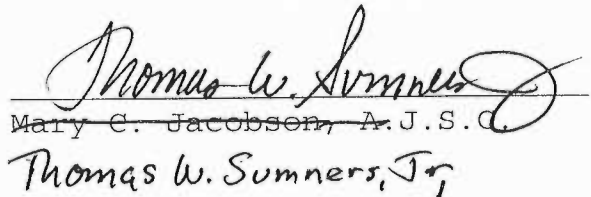 Thomas W. Sumners Jr
Mary C. Jacobson, A.J.S.C.
Thomas W. Sumners, Jr,